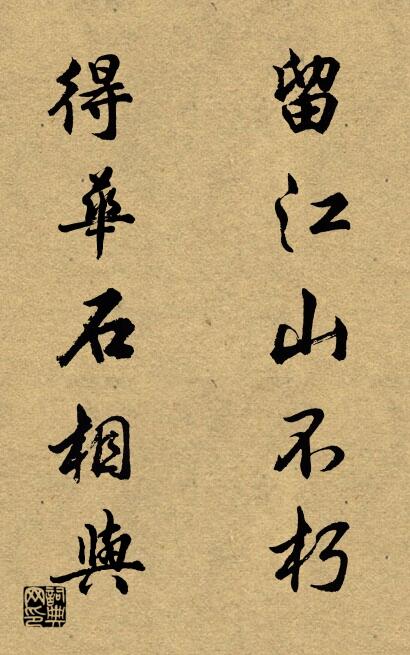 留江山不朽
得華石相與
詞典网印